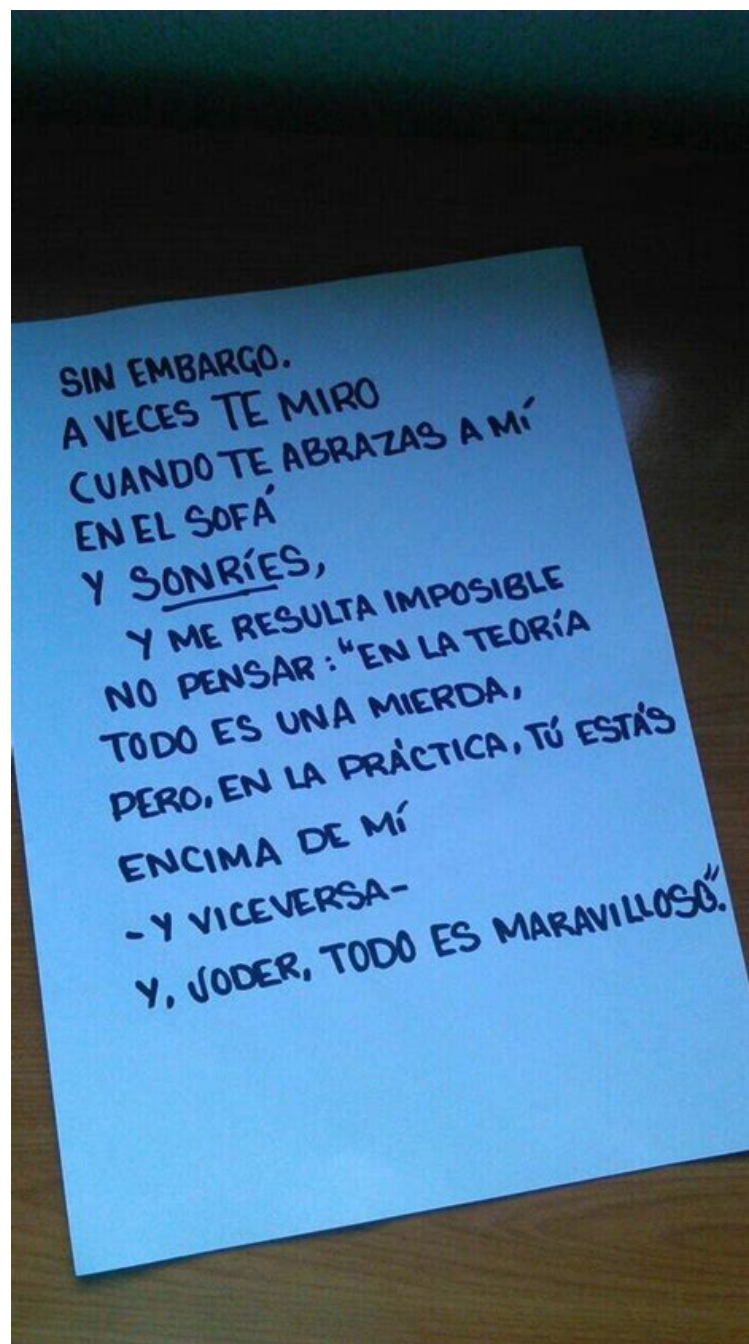 SIN EMBARGO.
A VECES TE MIRO
CUANDO TE ABRAZAS A MÍ
EN EL SOFÁ
Y SONRÍES,
Y ME RESULTA IMPOSIBLE
NO PENSAR: "EN LA TEORÍA
TODO ES UNA MIERDA,
PERO, EN LA PRÁCTICA, TÚ ESTÁS
ENCIMA DE MÍ
- Y VICEVERSA-
Y, JODER, TODO ES MARAVILLOSO".